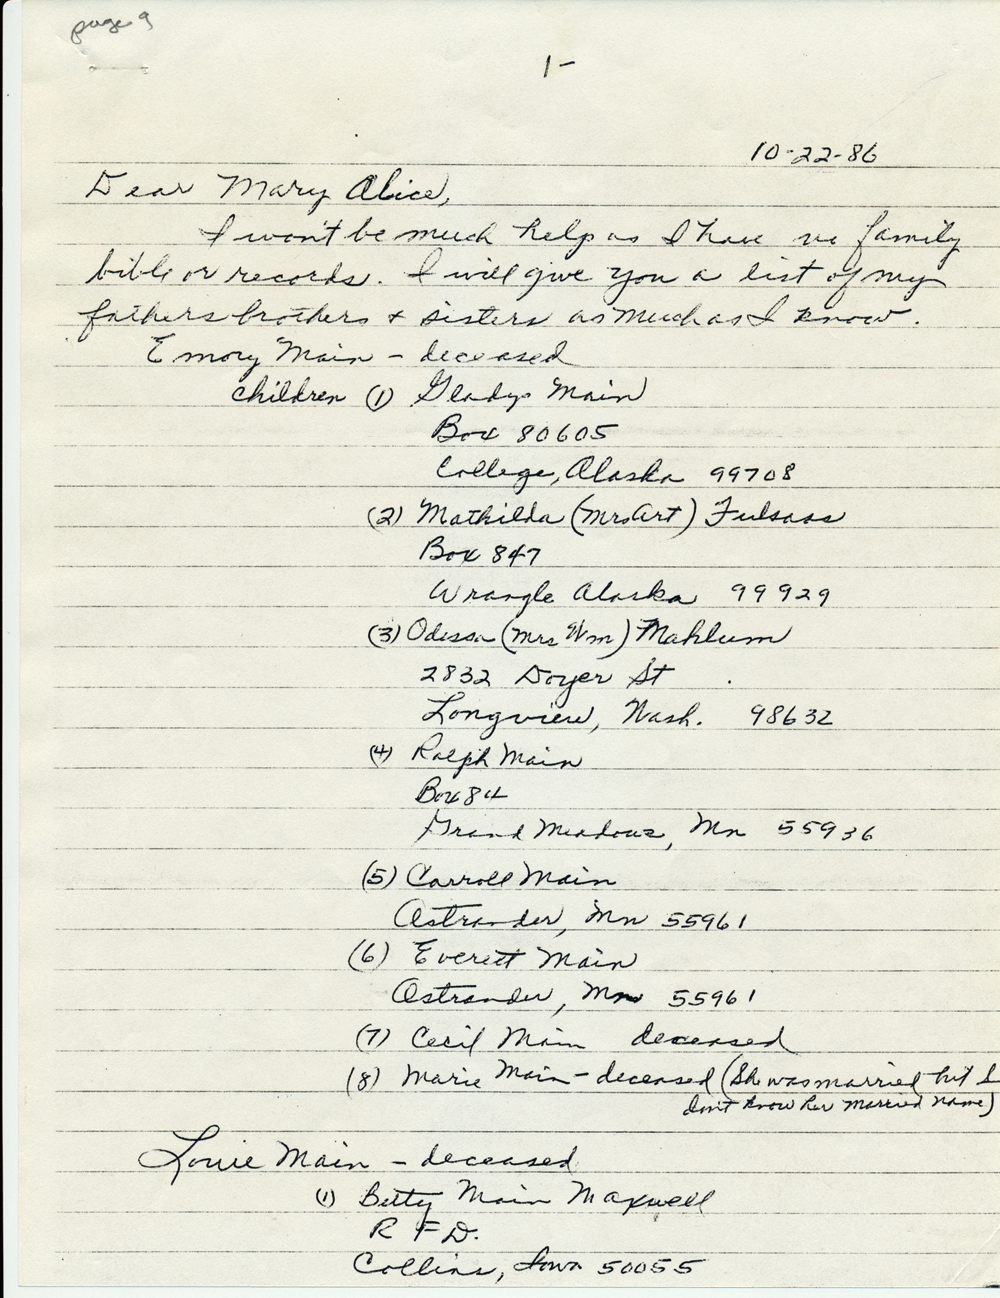 page 9
1-
10-22-86
Dear Mary Alice,
I won't be much help as I have no family
bible or records. I will give you a list of my
fathers brothers + sisters as much as I know.
Emory Main - deceased
children (1) Gladys Main
Box 80605
College, Alaska 99708
(2) Mathilda (Mrs Art) Fulsaas
Box 847
Wrangle Alaska 99929
(3) Odessa (Mrs Wm) Mahlum
2832 Doyer St
Longview, Wash. 98632
(4) Ralph Main
Box 84
Grand Meadow, Mn 55936
(5) Carroll Main
Ostrander, Mn 55961
(6) Everett Main
Ostrander, Mn 55961
(7) Cecil Main deceased
(8) Marie Main - deceased (She was married but I
don't know her married name)
Louie Main - deceased
(1) Betty Main Maxwell
R F D.
Collins, Iowa 50055